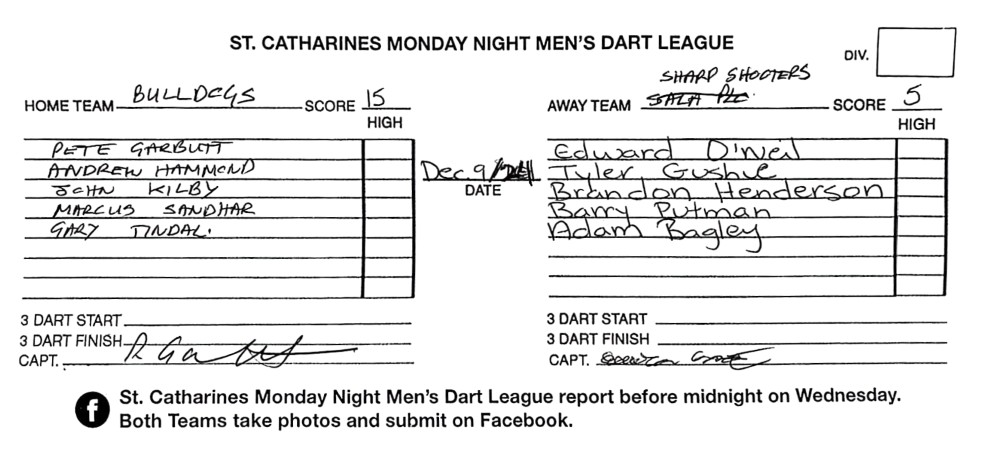 ST. CATHARINES MONDAY NIGHT MEN'S DART LEAGUE
DIV.
HOME TEAM BULLDOGS SCORE 15
HIGH
PETE GARBUTT
ANDREW HAMMOND
JOHN KILBY
MARCUS SANDHAR
GARY TINDAL
3 DART START
3 DART FINISH
CAPT.
Dec. 9
DATE
SHARP SHOOTERS
AWAY TEAM SCORE 5
HIGH
Edward O'Neil
Tyler Gushie
Brandon Henderson
Barry Putman
Adam Bagley
3 DART START
3 DART FINISH
CAPT.
f St. Catharines Monday Night Men's Dart League report before midnight on Wednesday.
Both Teams take photos and submit on Facebook.